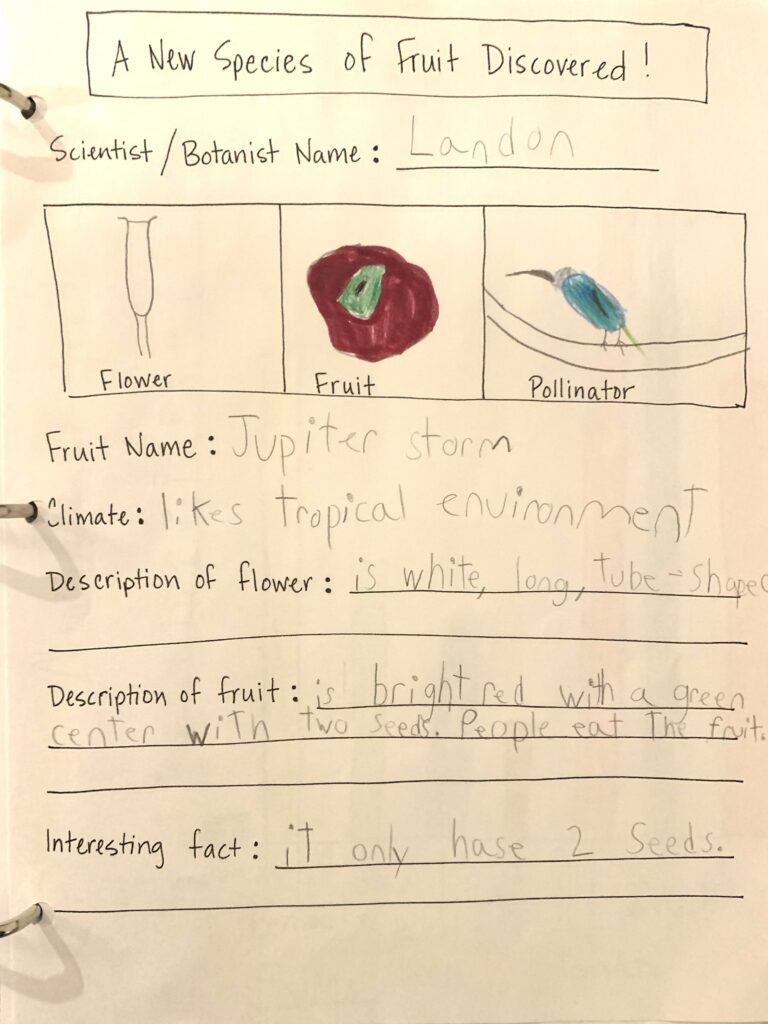 A New Species of Fruit Discovered!
Scientist/Botanist Name: Landon
Flower
Fruit
Pollinator
Fruit Name: Jupiter storm
Climate: likes tropical environment
Description of flower: is white, long, tube-shaped
Description of fruit: is bright red with a green
center with two seeds. People eat The fruit.
Interesting fact: iT only hase 2 Seeds.